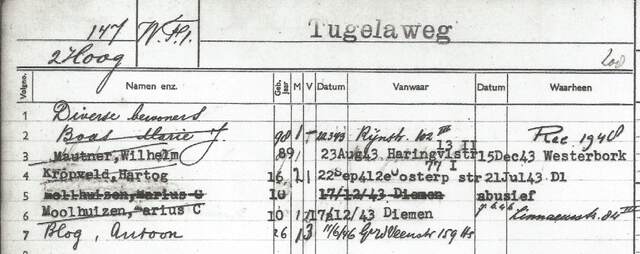 147 W.Pl. Tugelaweg
2 Hoog 200
Volgno. Namen enz. Geb. jaar M V Datum Vanwaar Datum Waarheen
1 Diverse bewoners
2 Boas Marie J 98 1 - 12343 Rijnstr. 102 III Rec 1948
3 Mautner, Wilhelm 89 1 23Aug43 Haringvlstr 13 II 15Dec43 Westerbork
4 Kropveld, Hartog 16 2 1 22Sep41 2e Oosterp str 77 I 21Jul43 D1
5 Moolhuizen, Marius C 10 17/12/43 Diemen abusief
6 Moolhuizen, Marius C 10 1 17/12/43 Diemen Linnaeusstr. 84 III
7 Blog, Antoon 26 1 3 11/6/46 Gerard Veenstr 159 Hs